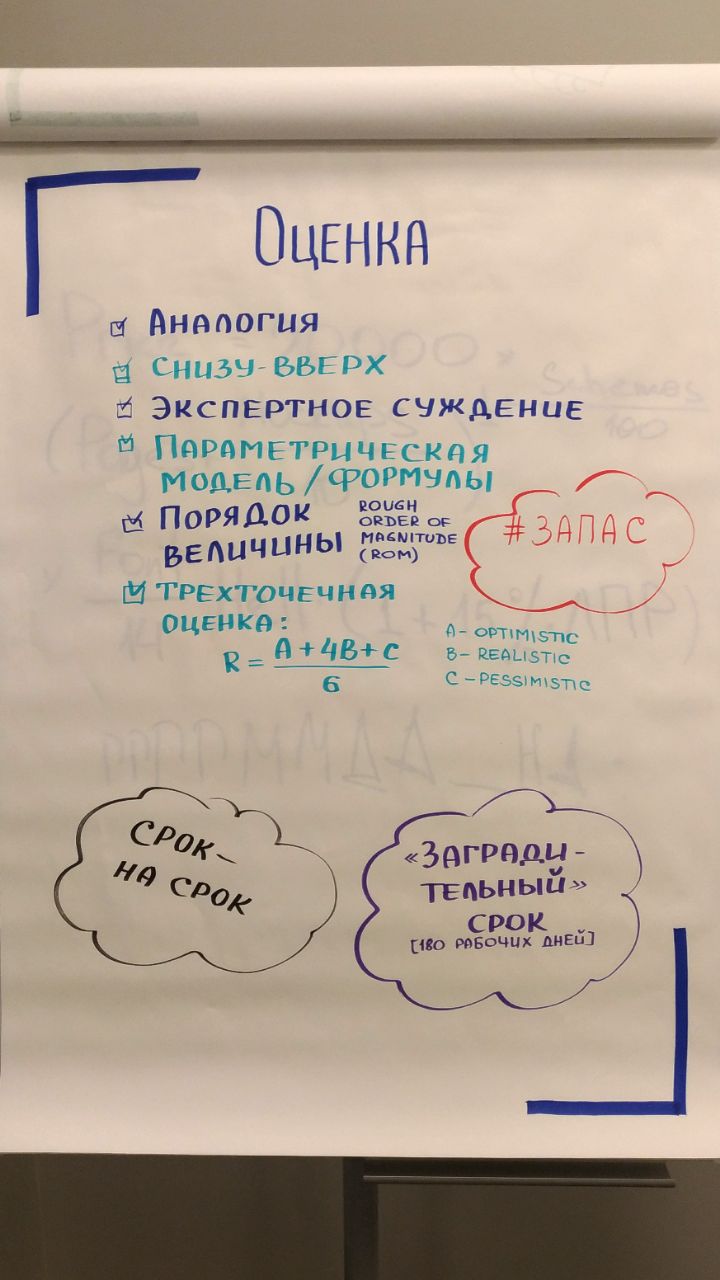 Оценка
Аналогия
Снизу-вверх
Экспертное суждение
Параметрическая
модель/формулы
Порядок
величины
ROUGH
ORDER OF
MAGNITUDE
(ROM)
#ЗАПАС
Трехточечная
оценка:
R = A+4B+C
6
A - OPTIMISTIC
B - REALISTIC
C - PESSIMISTIC
СРОК-
НА СРОК
«ЗАГРАДИ-
ТЕЛЬНЫЙ»
СРОК
[180 РАБОЧИХ ДНЕЙ]